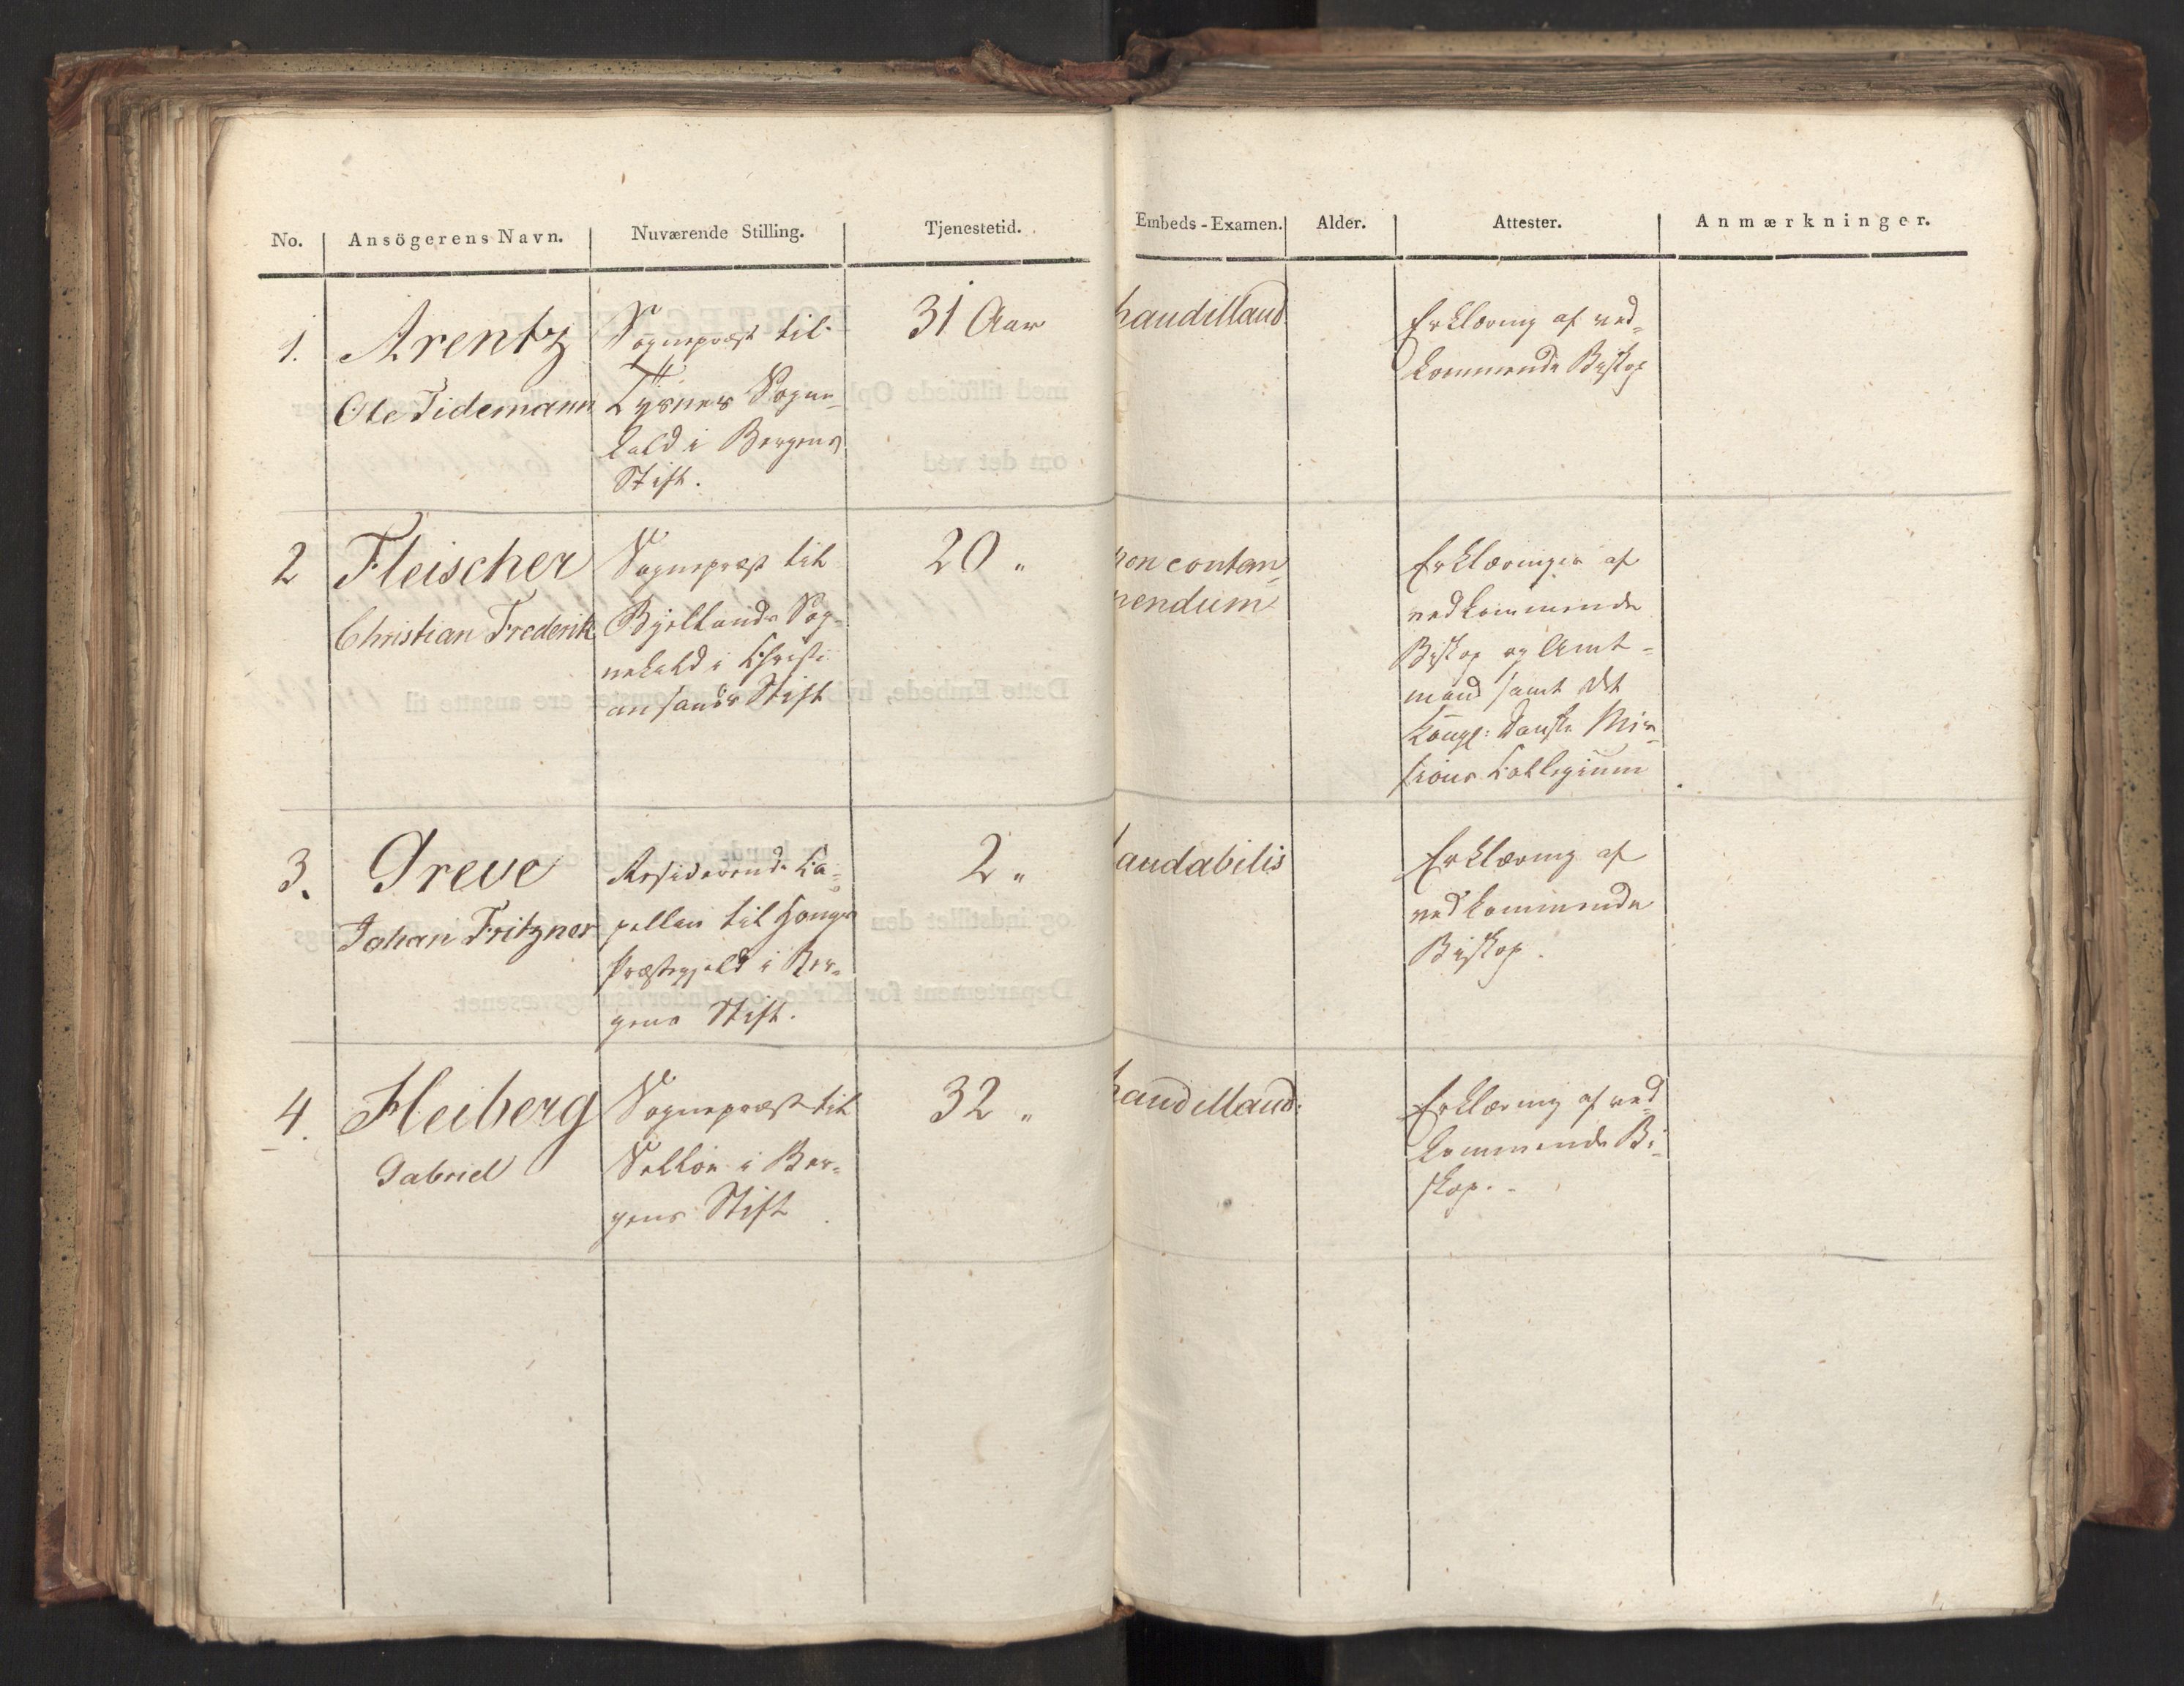 No. Ansögerens Navn. Nuværende Stilling. Tjenestetid. Embeds-Examen. Alder. Attester. Anmærkninger.
1. Arentz
Ole Tidemann
Sognepræst til
Tysnes Sogne-
kald i Bergens
Stift.
31 Aar
haud illaud
Erklæring af ved-
kommende Biskop
2 Fleischer
Christian Frederik
Sognepræst til
Bjellands Sog-
nekald i Christi-
ansands Stift
20 "
non contem-
nendum
Erklæringer af
vedkommende
Biskop og Amt-
mand samt det
Kongl: danske Mis-
sions Collegium
3. Greve
Johan Fritzner
Residerende Ca-
pellan til Houg
Præstegjeld i Ber-
gens Stift.
2 "
laudabilis
Erklæring af
vedkommende
Biskop.
4. Heiberg
Gabriel
Sognepræst til
Selloe i Ber-
gens Stift
32 "
haud illaud:
Erklæring af ved-
kommende Bi-
skop.